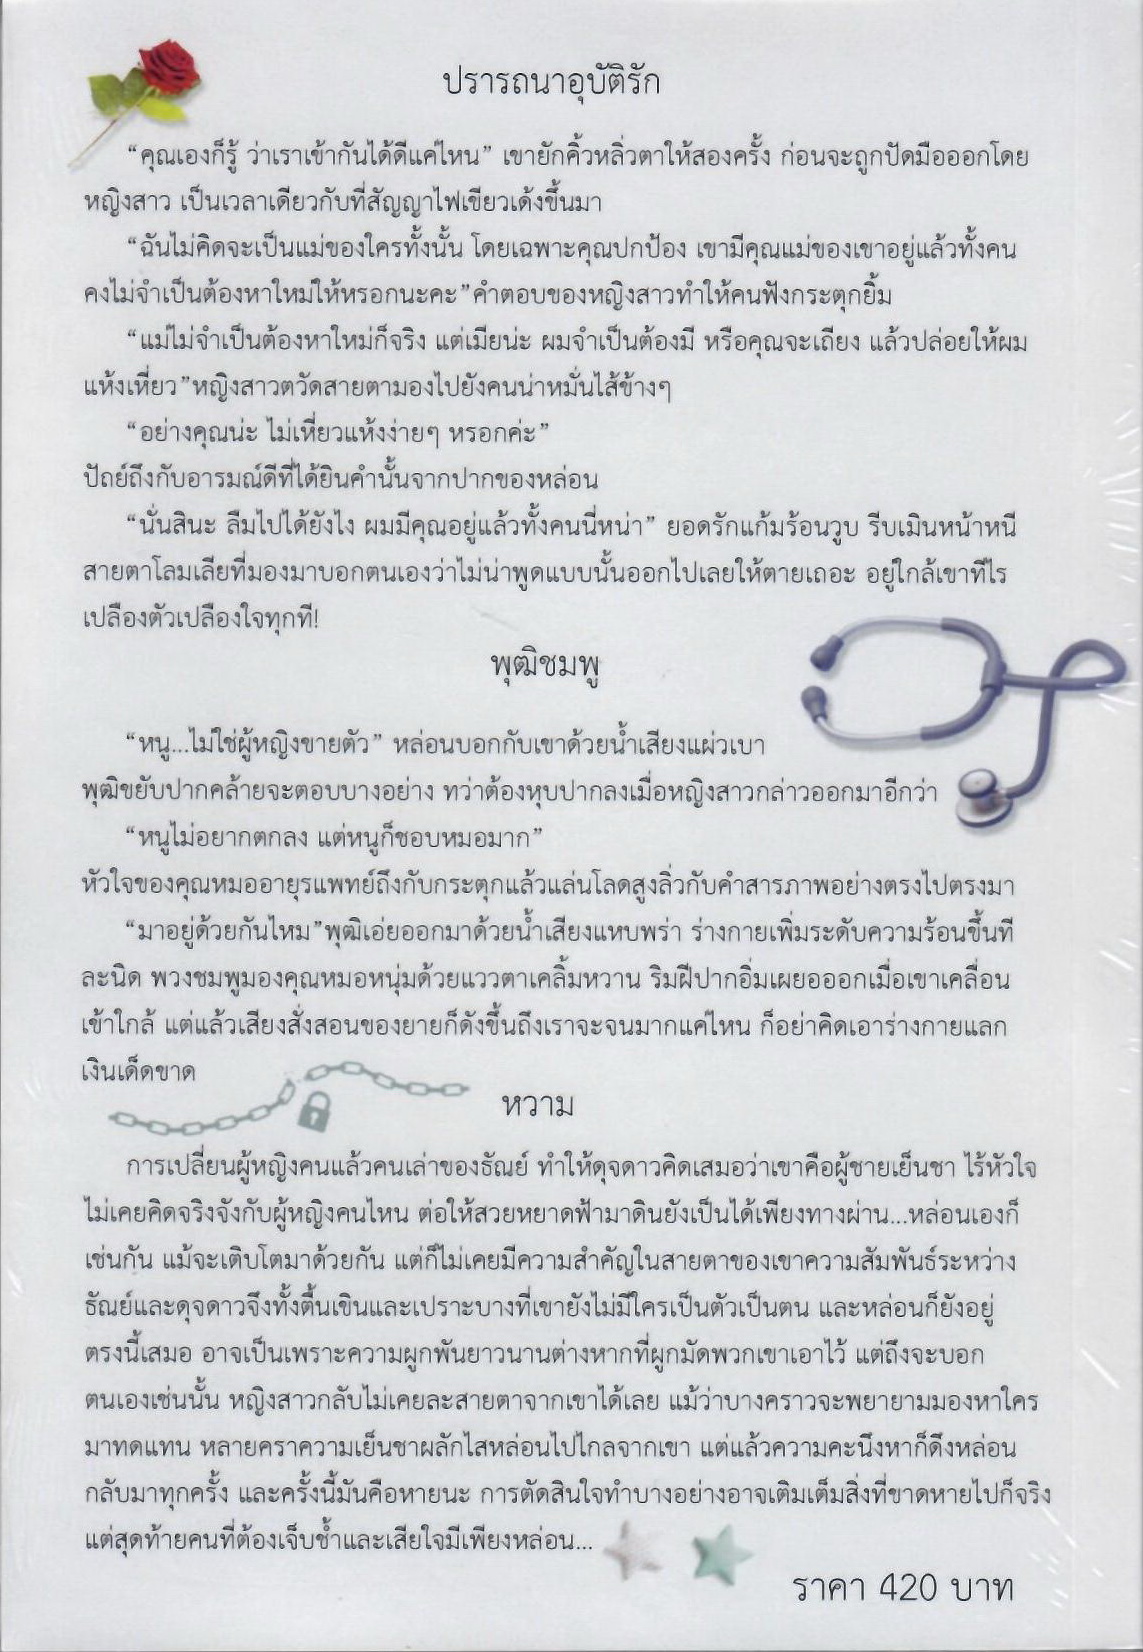 ปรารถนาอุบัติรัก
“คุณเองก็รู้ ว่าเราเข้ากันได้ดีแค่ไหน” เขายักคิ้วหลิ่วตาให้สองครั้ง ก่อนจะถูกปัดมือออกโดย
หญิงสาว เป็นเวลาเดียวกับที่สัญญาไฟเขียวเด้งขึ้นมา
“ฉันไม่คิดจะเป็นแม่ของใครทั้งนั้น โดยเฉพาะคุณปกป้อง เขามีคุณแม่ของเขาอยู่แล้วทั้งคน
คงไม่จำเป็นต้องหาใหม่ให้หรอกนะคะ”คำตอบของหญิงสาวทำให้คนฟังกระตุกยิ้ม
“แม่ไม่จำเป็นต้องหาใหม่ก็จริง แต่เมียน่ะ ผมจำเป็นต้องมี หรือคุณจะเถียง แล้วปล่อยให้ผม
แห้งเหี่ยว”หญิงสาวตวัดสายตามองไปยังคนน่าหมั่นไส้ข้างๆ
“อย่างคุณน่ะ ไม่เหี่ยวแห้งง่ายๆ หรอกค่ะ”
ปัถย์ถึงกับอารมณ์ดีที่ได้ยินคำนั้นจากปากของหล่อน
“นั่นสินะ ลืมไปได้ยังไง ผมมีคุณอยู่แล้วทั้งคนนี่หน่า” ยอดรักแก้มร้อนวูบ รีบเมินหน้าหนี
สายตาโลมเลียที่มองมาบอกตนเองว่าไม่น่าพูดแบบนั้นออกไปเลยให้ตายเถอะ อยู่ใกล้เขาทีไร
เปลืองตัวเปลืองใจทุกที!
พุฒิชมพู
“หนู...ไม่ใช่ผู้หญิงขายตัว” หล่อนบอกกับเขาด้วยน้ำเสียงแผ่วเบา
พุฒิขยับปากคล้ายจะตอบบางอย่าง ทว่าต้องหุบปากลงเมื่อหญิงสาวกล่าวออกมาอีกว่า
“หนูไม่อยากตกลง แต่หนูก็ชอบหมอมาก”
หัวใจของคุณหมออายุรแพทย์ถึงกับกระตุกแล้วแล่นโลดสูงลิ่วกับคำสารภาพอย่างตรงไปตรงมา
“มาอยู่ด้วยกันไหม”พุฒิเอ่ยออกมาด้วยน้ำเสียงแหบพร่า ร่างกายเพิ่มระดับความร้อนขึ้นที
ละนิด พวงชมพูมองคุณหมอหนุ่มด้วยแววตาเคลิ้มหวาน ริมฝีปากอิ่มเผยอออกเมื่อเขาเคลื่อน
เข้าใกล้ แต่แล้วเสียงสั่งสอนของยายก็ดังขึ้นถึงเราจะจนมากแค่ไหน ก็อย่าคิดเอาร่างกายแลก
เงินเด็ดขาด
หวาม
การเปลี่ยนผู้หญิงคนแล้วคนเล่าของธัณย์ ทำให้ดุจดาวคิดเสมอว่าเขาคือผู้ชายเย็นชา ไร้หัวใจ
ไม่เคยคิดจริงจังกับผู้หญิงคนไหน ต่อให้สวยหยาดฟ้ามาดินยังเป็นได้เพียงทางผ่าน...หล่อนเองก็
เช่นกัน แม้จะเติบโตมาด้วยกัน แต่ก็ไม่เคยมีความสำคัญในสายตาของเขาความสัมพันธ์ระหว่าง
ธัณย์และดุจดาวจึงทั้งตื้นเขินและเปราะบางที่เขายังไม่มีใครเป็นตัวเป็นตน และหล่อนก็ยังอยู่
ตรงนี้เสมอ อาจเป็นเพราะความผูกพันยาวนานต่างหากที่ผูกมัดพวกเขาเอาไว้ แต่ถึงจะบอก
ตนเองเช่นนั้น หญิงสาวกลับไม่เคยละสายตาจากเขาได้เลย แม้ว่าบางคราวจะพยายามมองหาใคร
มาทดแทน หลายคราความเย็นชาผลักไสหล่อนไปไกลจากเขา แต่แล้วความคะนึงหาก็ดึงหล่อน
กลับมาทุกครั้ง และครั้งนี้มันคือหายนะ การตัดสินใจทำบางอย่างอาจเติมเต็มสิ่งที่ขาดหายไปก็จริง
แต่สุดท้ายคนที่ต้องเจ็บช้ำและเสียใจมีเพียงหล่อน...
ราคา 420 บาท